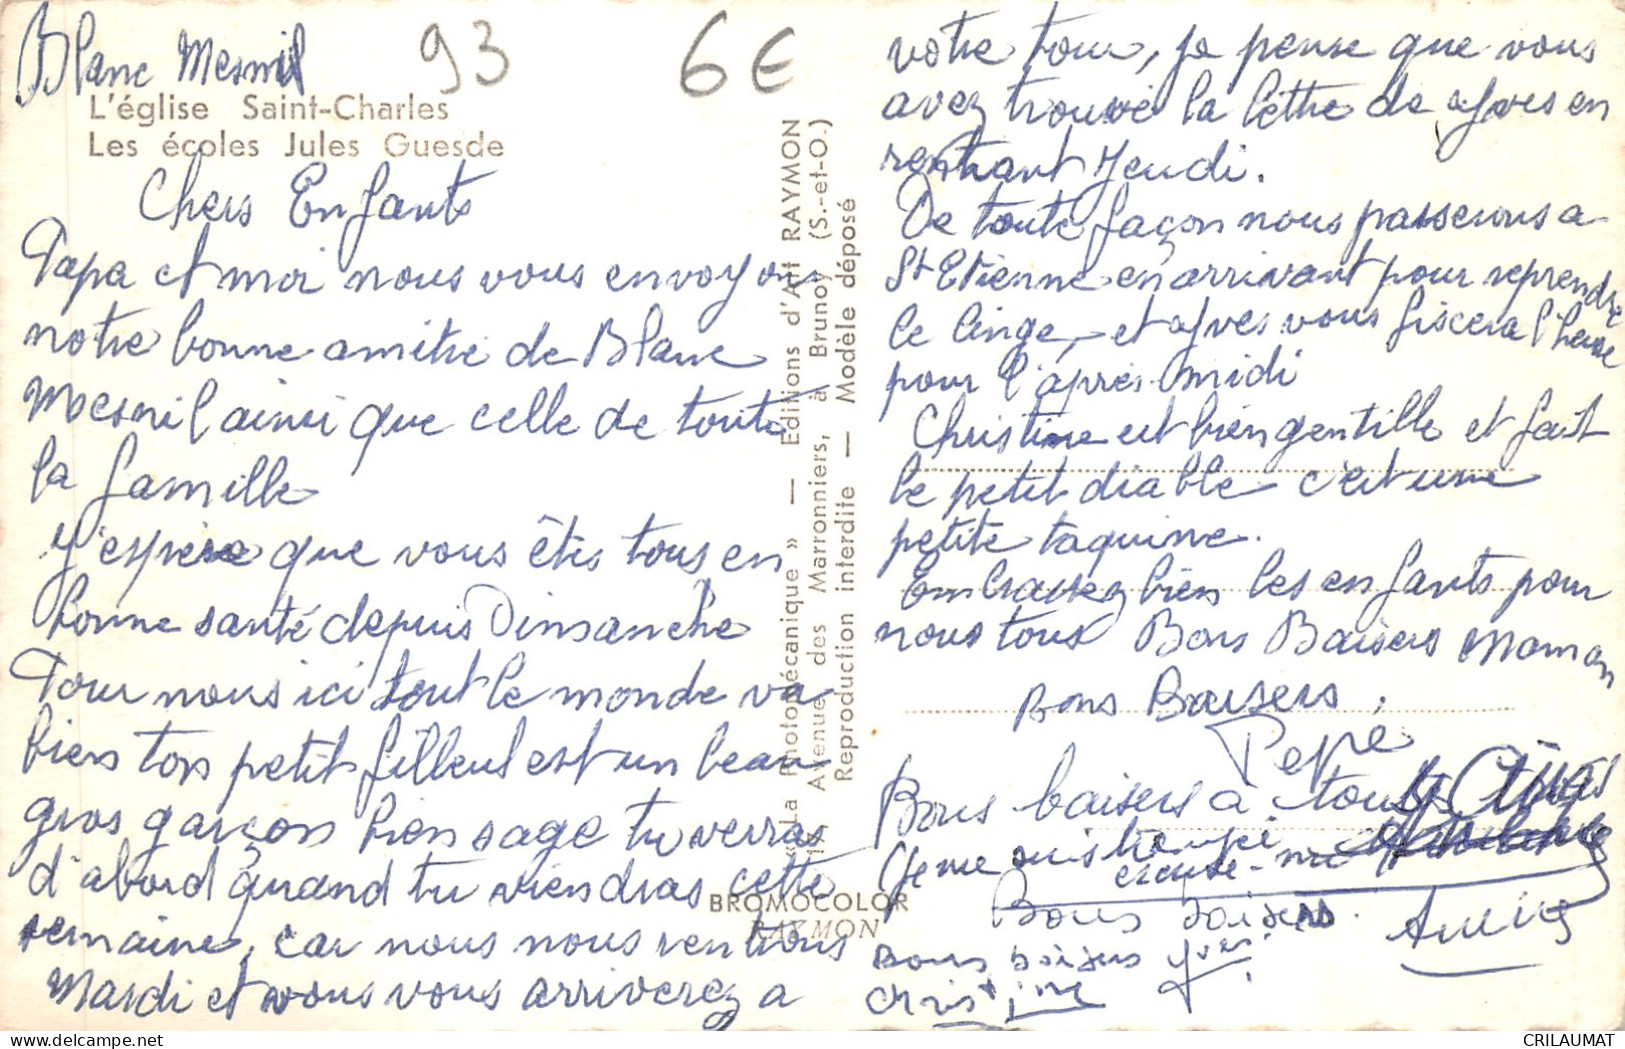 Blanc Mesnil 93 6€
L'église Saint-Charles
Les écoles Jules Guesde
Chers Enfants
Papa et moi nous vous envoyons
notre bonne amitié de Blanc
Mesnil ainsi que celle de toute
la famille
J'espère que vous êtes tous en
bonne santé depuis Dimanche
Pour nous ici tout le monde va
bien ton petit filleul est un beau
gros garçon bien sage tu verras
d'abord quand tu viendras cette
semaine, car nous nous rentrons
Mardi et vous vous arriverez a
« La Photomécanique » — Editions d'Art RAYMON
Avenue des Marronniers, à Brunoy (S.-et-O.)
Reproduction interdite — Modèle déposé
BROMOCOLOR
RAYMON
votre tour, je pense que vous
avez trouvé la lettre de Yves en
rentrant Jeudi.
De toute façon nous passerons a
St Etienne en arrivant pour reprendre
le linge, et Yves vous fixera l'heure
pour l'après-midi
Christine est bien gentille et fait
le petit diable c'est une
petite taquine.
Embrassez bien les enfants pour
nous tous Bons Baisers Maman
Bons Baisers,
Pepe
Bons baisers à tous
Je me suis trompé
excuse-moi
Bons baisers.
Bons baisers Yves
Christine
CRILAUMAT